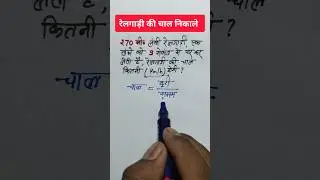 रेलगाड़ी की चाल निकाले
270 मी० लंबी रेलगाड़ी, एक
खंभे को 9 सेकंड में पार कर
लेती है, रेलगाड़ी की चाल
कितनी (Km/h) होगी ?
चाल = दूरी
समय